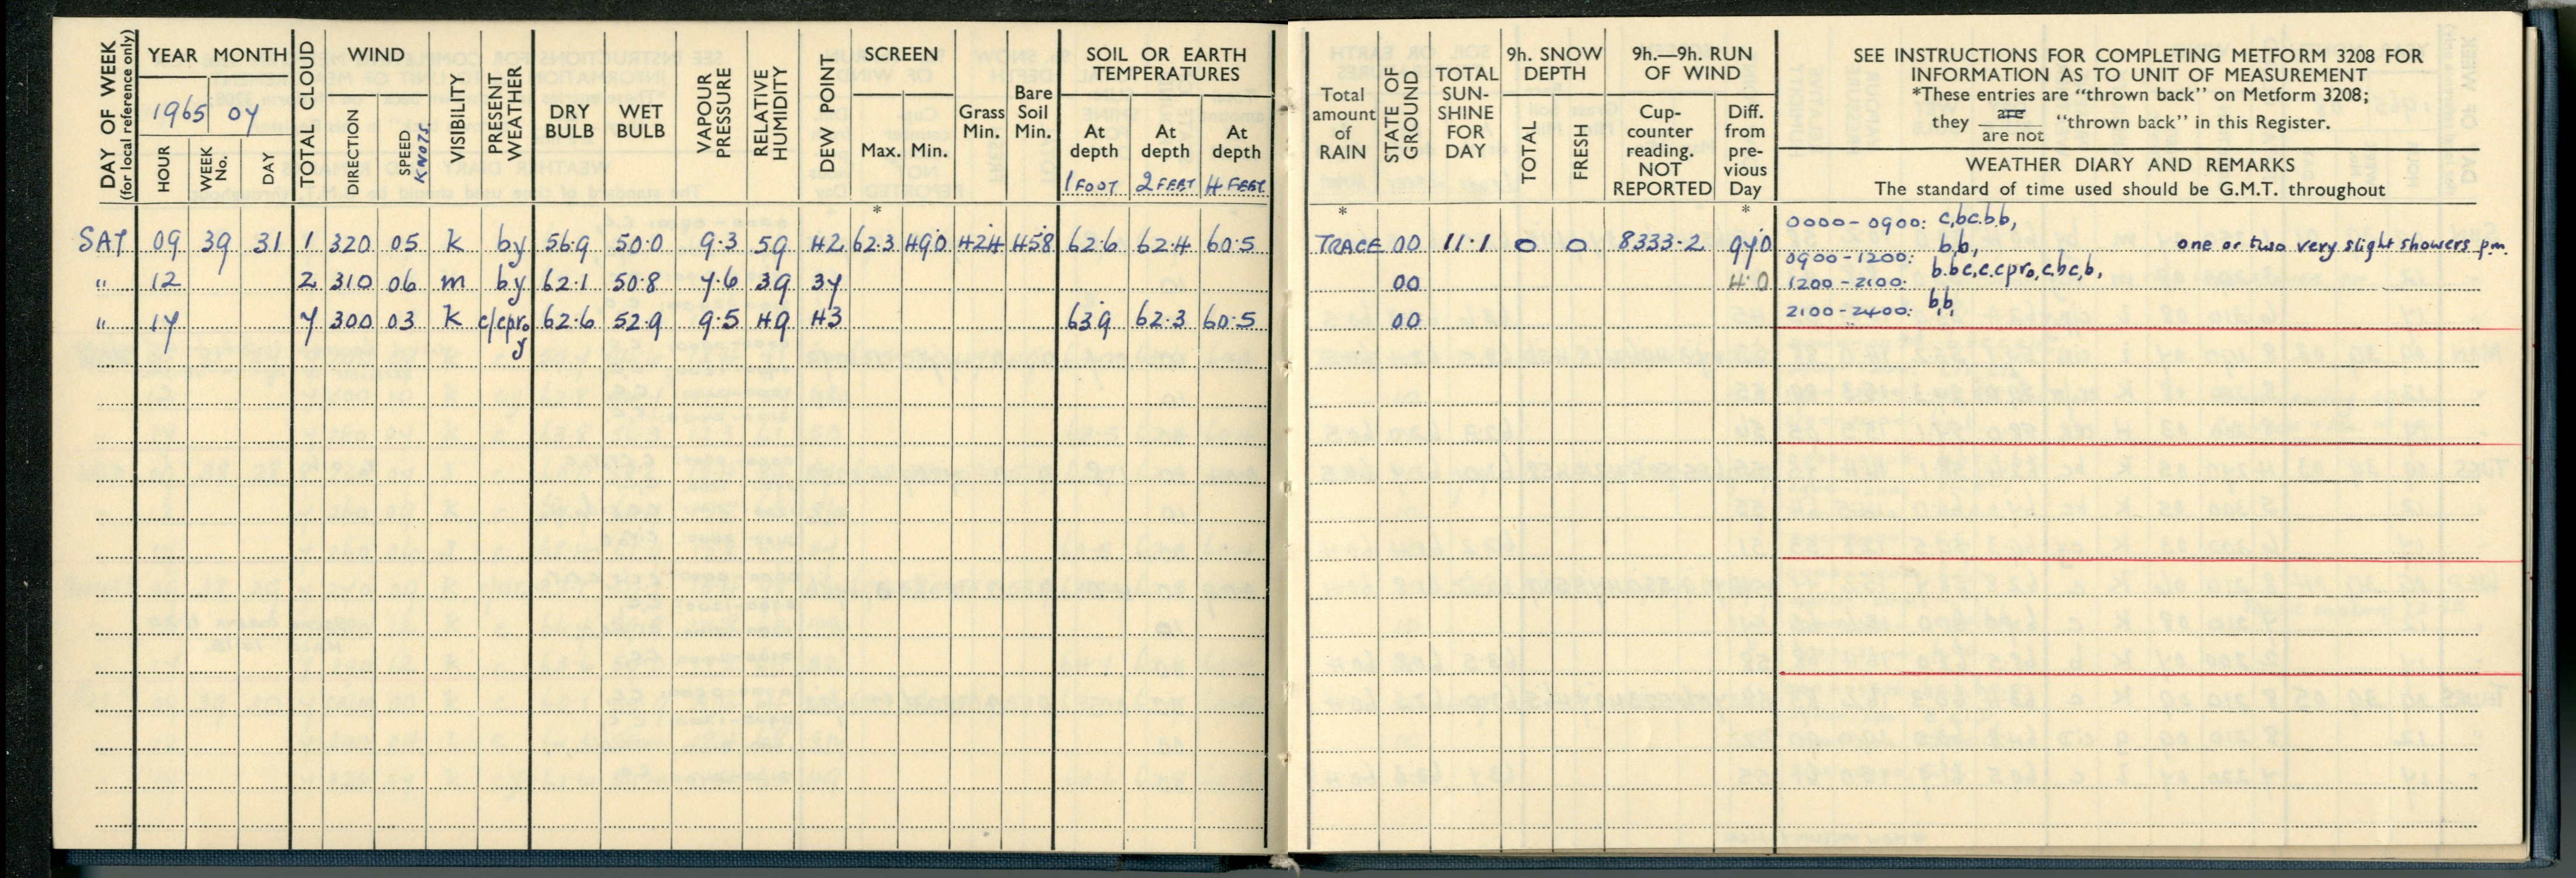 DAY OF WEEK
(for local reference only)
YEAR MONTH
1965 07
HOUR
WEEK No.
DAY
TOTAL CLOUD
WIND
DIRECTION
SPEED KNOTS.
VISIBILITY
PRESENT WEATHER
DRY BULB
WET BULB
VAPOUR PRESSURE
RELATIVE HUMIDITY
DEW POINT
SCREEN
Max. Min.
*
Grass Min.
Bare Soil Min.
SOIL OR EARTH TEMPERATURES
At depth 1 FOOT
At depth 2 FEET
At depth 4 FEET
Total amount of RAIN
*
STATE OF GROUND
TOTAL SUN-SHINE FOR DAY
9h. SNOW DEPTH
TOTAL
FRESH
9h.—9h. RUN OF WIND
Cup-counter reading. NOT REPORTED
Diff. from pre-vious Day
*
SEE INSTRUCTIONS FOR COMPLETING METFORM 3208 FOR
INFORMATION AS TO UNIT OF MEASUREMENT
*These entries are "thrown back" on Metform 3208;
they are / are not "thrown back" in this Register.
WEATHER DIARY AND REMARKS
The standard of time used should be G.M.T. throughout
SAT 09 39 31 1 320 05 k by 56.9 50.0 9.3 59 42 62.3 49.0 42.4 45.8 62.6 62.4 60.5 TRACE 00 11.1 0 0 8333.2 97.0
" 12 2 310 06 m by 62.1 50.8 7.6 39 37 00 4.0
" 17 7 300 03 k c/cpro y 62.6 52.9 9.5 49 43 63.9 62.3 60.5 00
0000 - 0900: c,bc.bb,
0900 - 1200: b,b, one or two very slight showers p.m.
1200 - 2100: b.bc,c.cpro,c.bc,b,
2100 - 2400: b,b,